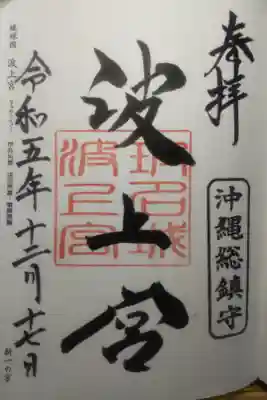 奉拝
沖縄総鎮守
波上宮
令和五年十二月十七日
琉球国
波上宮